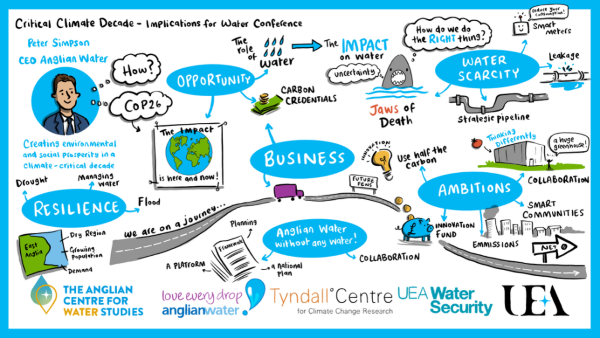 Critical Climate Decade - Implications for Water Conference
Peter Simpson
CEO Anglian Water
How?
COP26
Creating environmental
and social prosperity in a
Climate-critical decade
OPPORTUNITY
The
role
of
water
The IMPACT
on water
uncertainty
Jaws of
Death
CARBON
CREDENTIALS
How do we do
the RIGHT thing?
reduce your
consumption!
Smart
meters
WATER
SCARCITY
Leakage
Strategic pipeline
The Impact
is here and now!
BUSINESS
INNOVATION
Use half the
carbon
Thinking
Differently
a huge
greenhouse!
COLLABORATION
AMBITIONS
SMART
COMMUNITIES
EMMISSIONS
INNOVATION
FUND
FUTURE
FENS
Drought
Managing
water
RESILIENCE
Flood
we are on a journey...
East
Anglia
Dry Region
Growing
Population
Demand
Planning
Framework
A PLATFORM
a national
plan
Anglian Water
without any water!
COLLABORATION
THE ANGLIAN
CENTRE FOR
WATER STUDIES
love every drop
anglianwater
Tyndall°Centre
for Climate Change Research
UEA Water
Security
UEA